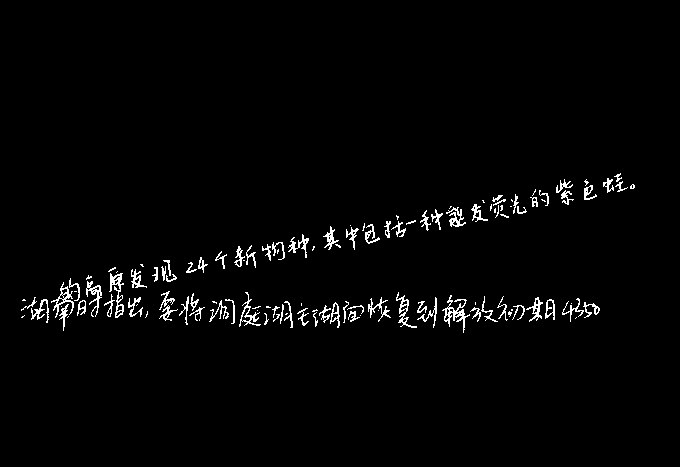 的高原发现24个新物种,其中包括一种能发荧光的紫色蛙。
湖南时指出,要将洞庭湖主湖面恢复到解放初期4350